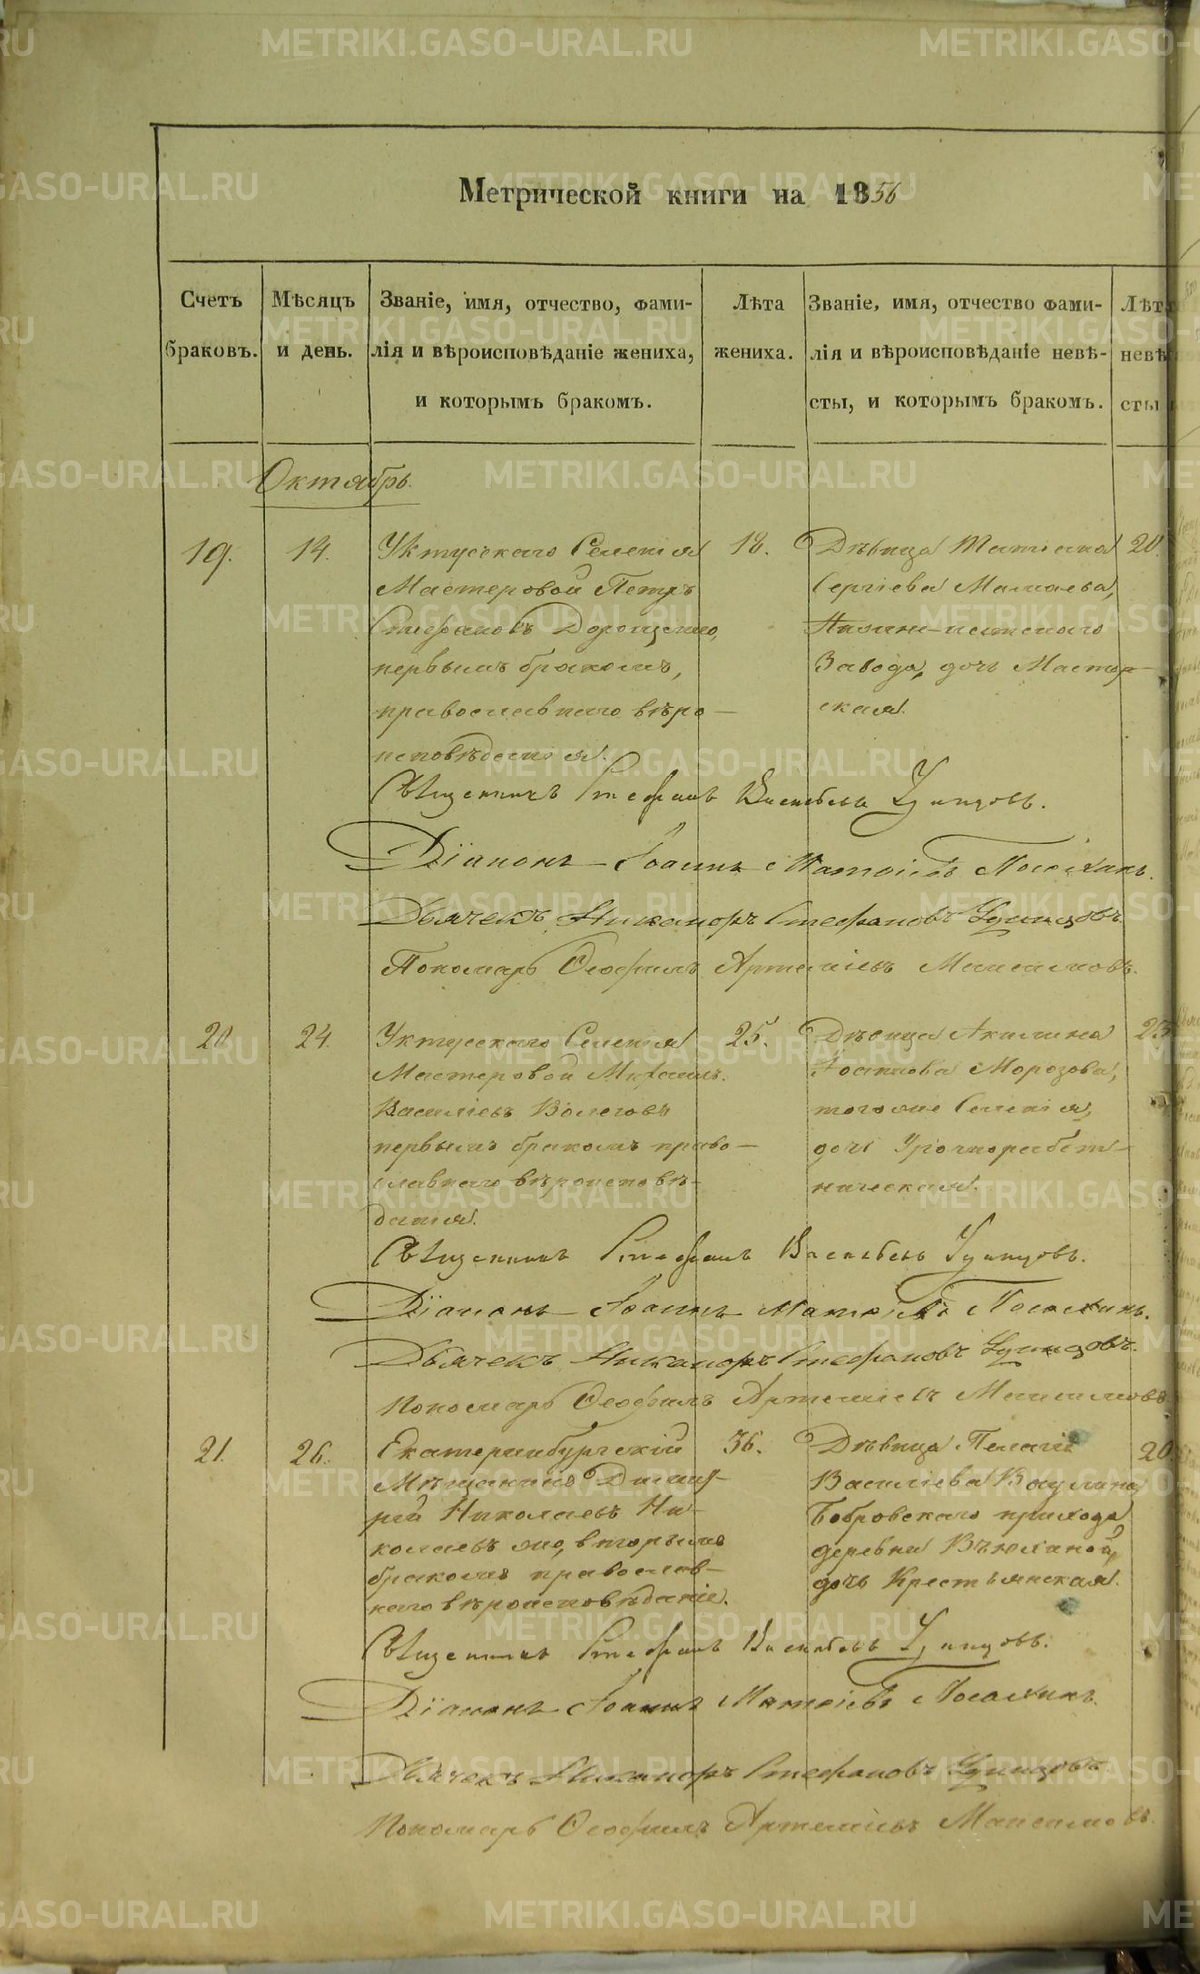 Метрической книги на 1856
Счетъ браковъ.
Мѣсяцъ и день.
Званіе, имя, отчество, фами-
лія и вѣроисповѣданіе жениха,
и которымъ бракомъ.
Лѣта жениха.
Званіе, имя, отчество фами-
лія и вѣроисповѣданіе невѣ-
сты, и которымъ бракомъ.
Лѣта
невѣ
сты
Октябрь.
19.
14.
Уктусскаго Селенія
Мастеровой Петръ
Стефановъ
первымъ бракомъ,
православнаго вѣро-
исповѣданія.
18.
Дѣвица Татіана
Сергіева
Завода, дочь Мастер-
ская.
20.
Священникъ Стефанъ Васильевъ Удинцовъ.
Діаконъ Іоаннъ Матѳіевъ
Дьячекъ Никаноръ Стефановъ Удинцовъ
Пономарь Ѳеофилъ Артеміевъ Максимовъ.
20
24.
Уктусскаго Селенія
Мастеровой Михаилъ
Василіевъ Волеговъ
первымъ бракомъ право-
славнаго вѣроисповѣ-
данія.
25.
Дѣвица Акилина
Іоаннова Морозова,
того же Селенія,
дочь Урочноработ-
ническая.
Священникъ Стефанъ Васильевъ Удинцовъ.
Діаконъ Іоаннъ Матѳіевъ
Дьячекъ Никаноръ Стефановъ Удинцовъ.
Пономарь Ѳеофилъ Артеміевъ Максимовъ
21.
26.
Екатеринбургскій
Мѣщанинъ Димит-
рій Николаевъ Ни-
колаевъ же, вторымъ
бракомъ православ-
наго вѣроисповѣданіе.
36.
Дѣвица Пелагія
Василіева Ваулина
Бобровскаго прихода
деревни
дочь Крестьянская.
20
Священникъ Стефанъ Васильевъ Удинцовъ.
Діаконъ Іоаннъ Матѳіевъ
Дьячекъ Никаноръ Стефановъ Удинцовъ
Пономарь Ѳеофилъ Артеміевъ Максимовъ.
METRIKI.GASO-URAL.RU